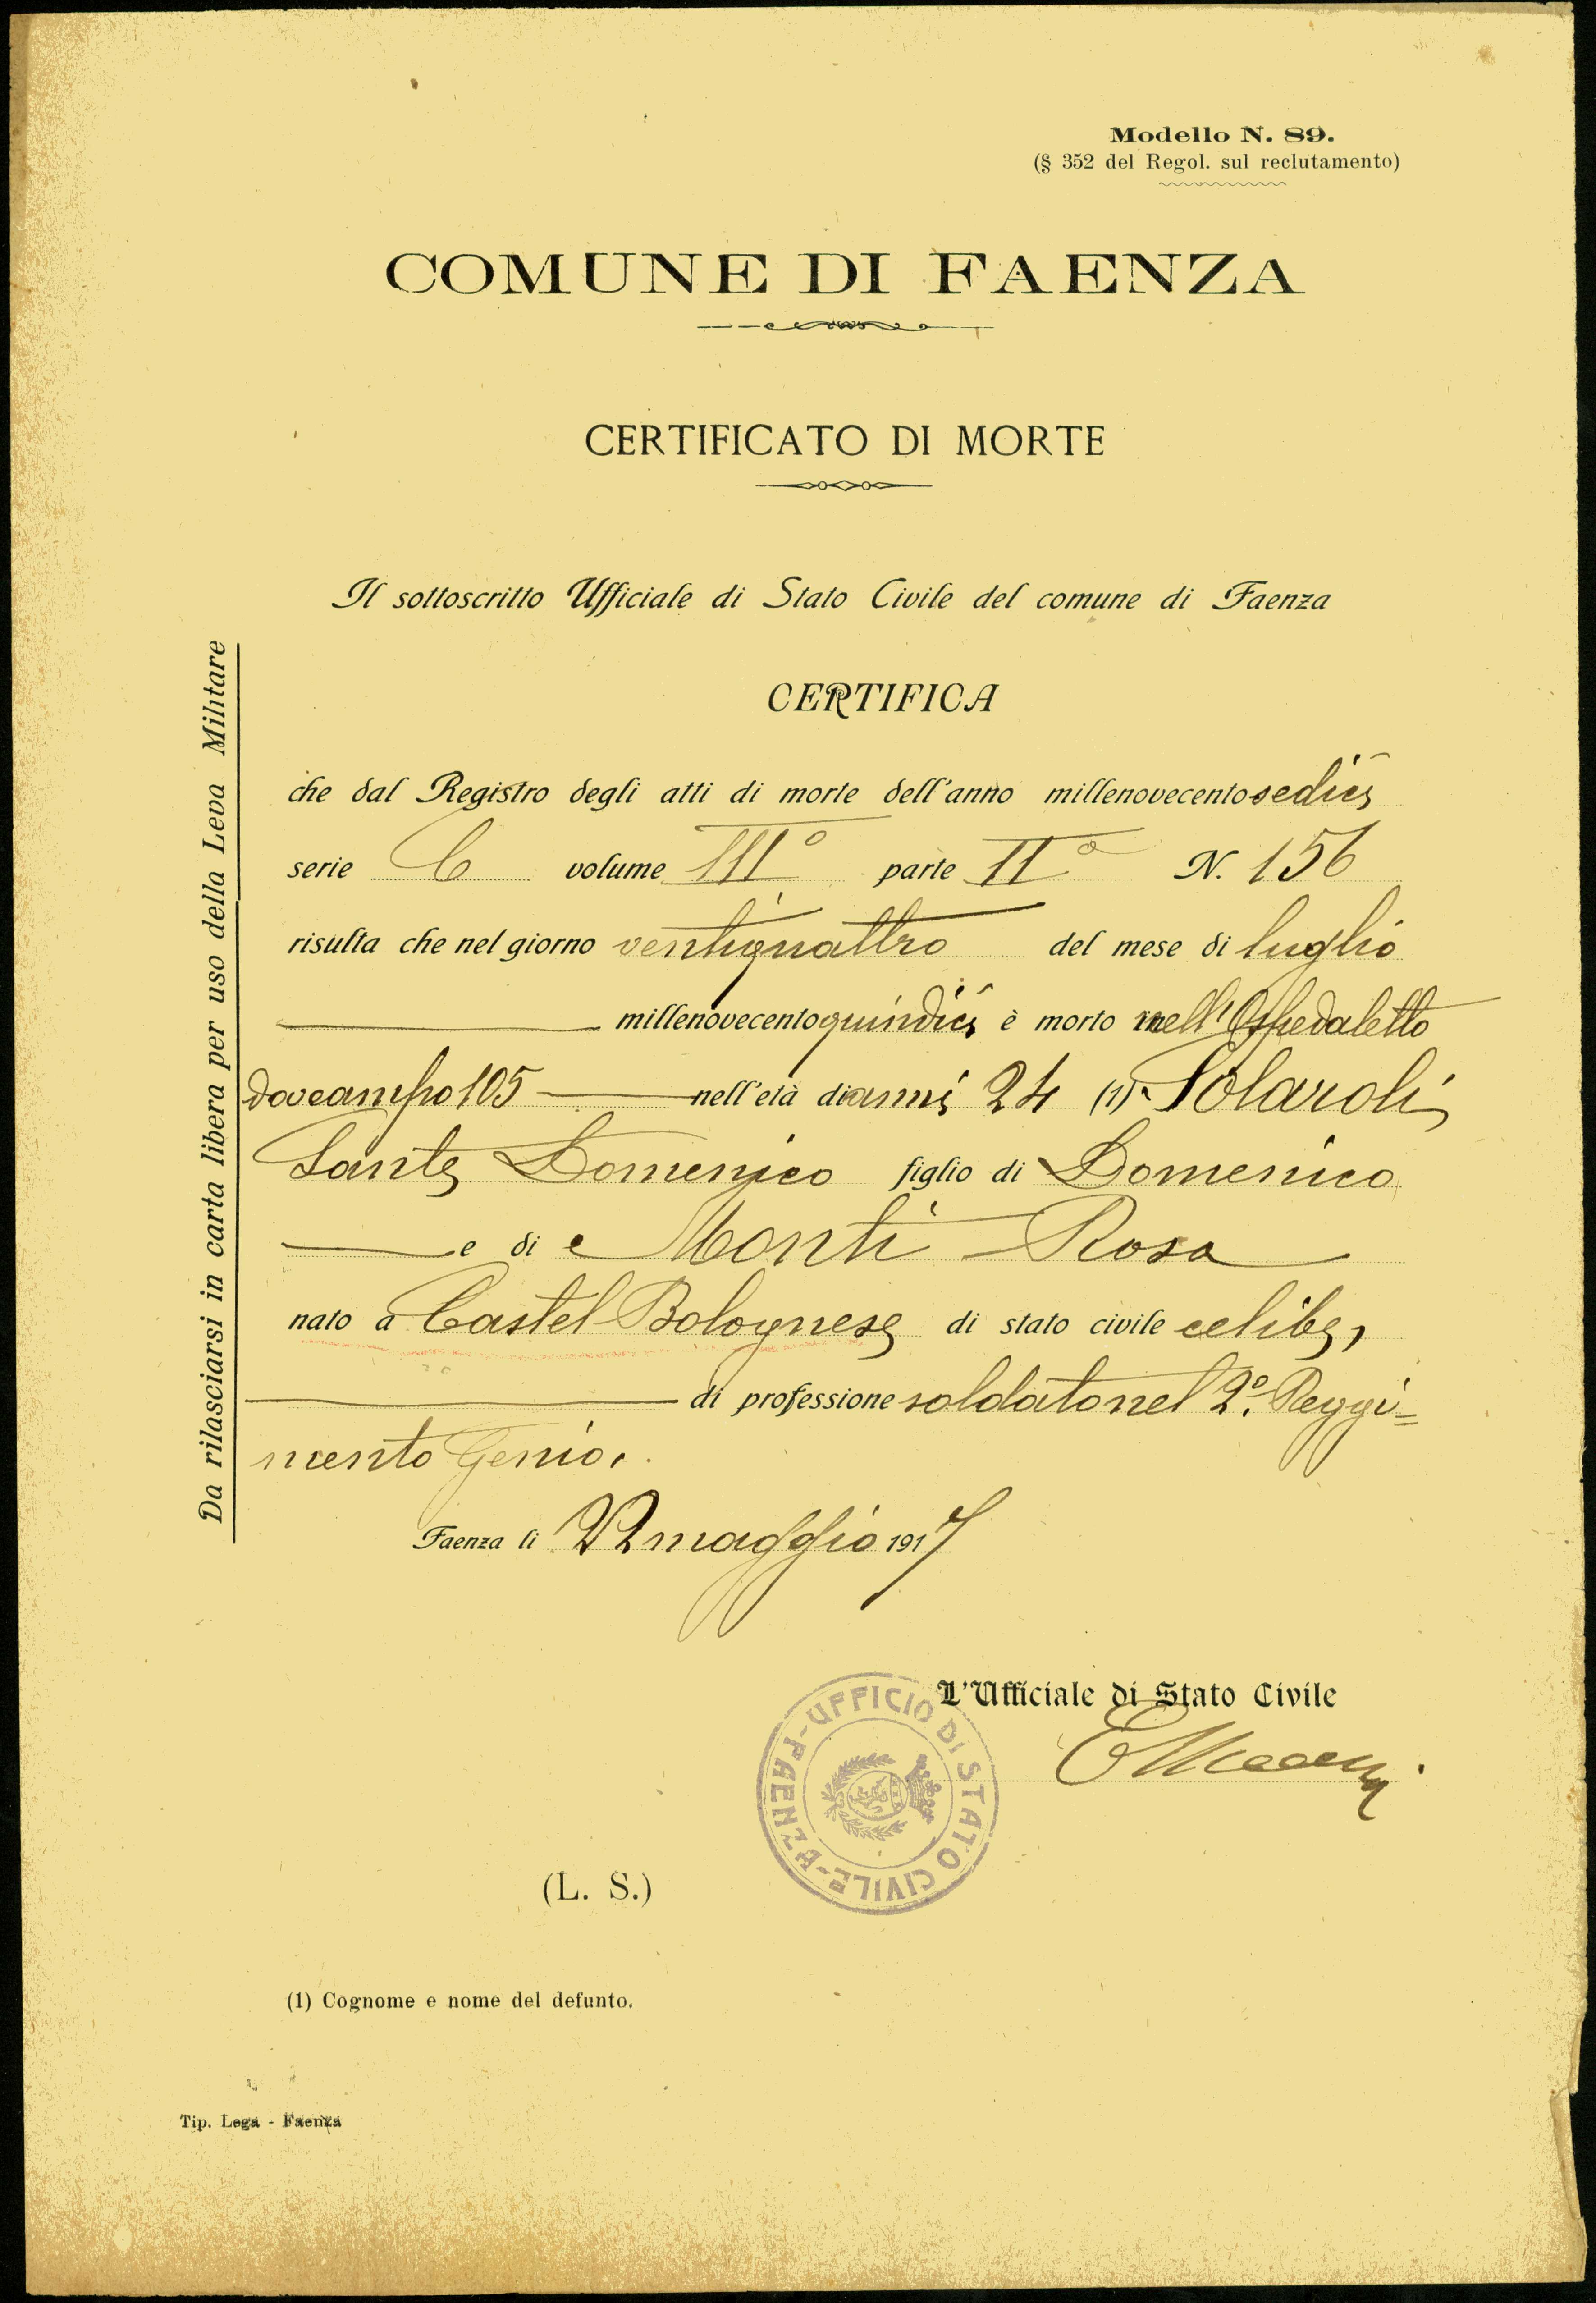 Modello N. 89.
(§ 352 del Regol. sul reclutamento)
COMUNE DI FAENZA
CERTIFICATO DI MORTE
Il sottoscritto Ufficiale di Stato Civile del comune di Faenza
CERTIFICA
che dal Registro degli atti di morte dell'anno millenovecentosedici
serie C volume III° parte II° N. 156
risulta che nel giorno ventiquattro del mese di luglio
millenovecentoquindici è morto nell'Ospedaletto
da campo 105 nell'età di anni 24 (1) Solaroli
Sante Domenico figlio di Domenico
e di Monti Rosa
nato a Castel Bolognese di stato civile celibe,
di professione soldato nel 2°. Reggi=
mento Genio.
Faenza li 22 maggio 1917
Da rilasciarsi in carta libera per uso della Leva Militare
L'Ufficiale di Stato Civile
UFFICIO DI STATO CIVILE - FAENZA -
(L. S.)
(1) Cognome e nome del defunto.
Tip. Lega - Faenza